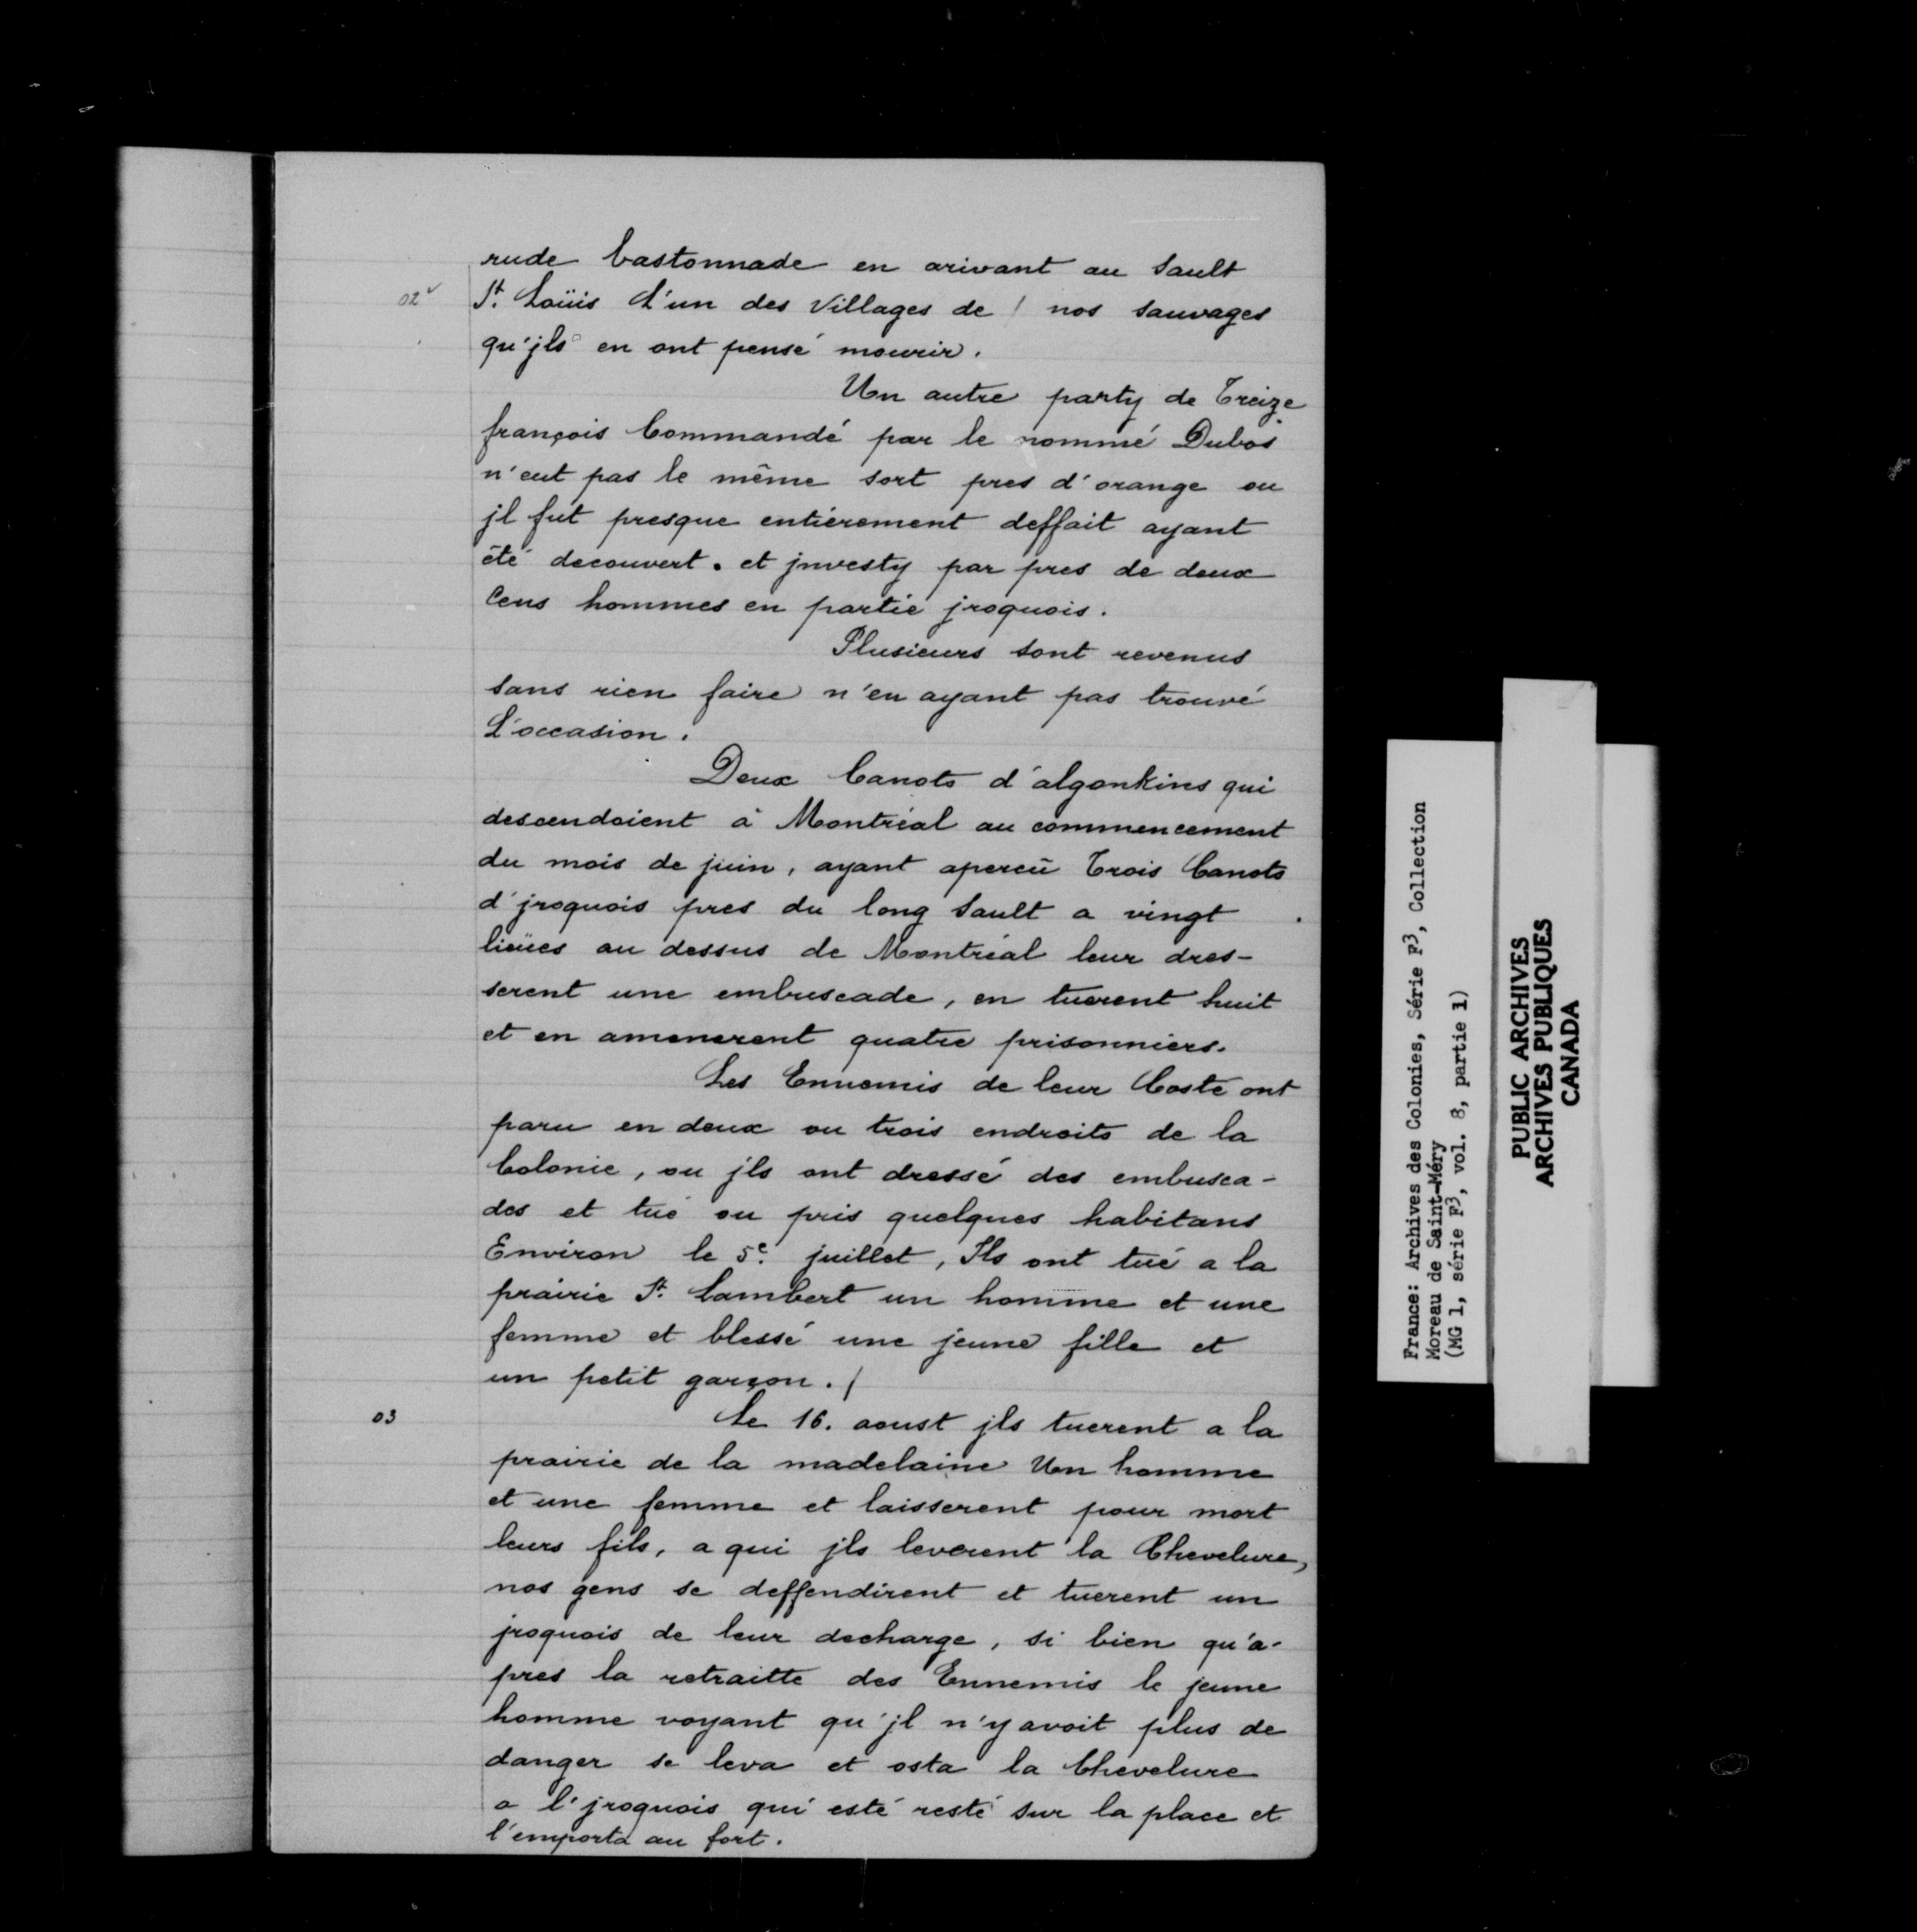 rude bastonnade en arivant au Sault
02v St. Loüis L'un des Villages de / nos sauvages
qu'jls en ont pensé mourir.
Un autre party de Treize
françois Commandé par le nommé Dubos
n'eut pas le même sort pres d'orange ou
jl fut presque entiérement deffait ayant
été decouvert. et jnvesty par pres de deux
Cens hommes en partie jroquois.
Plusieurs sont revenus
sans rien faire n'en ayant pas trouvé
L'occasion.
Deux Canots d'algonkins qui
descendoient à Montréal au commencement
du mois de juin, ayant apercû Trois Canots
d'jroquois pres du long Sault a vingt
lieües au dessus de Montréal leur dres-
serent une embuscade, en tuerent huit
et en amenerent quatre prisonniers.
Les Ennemis de leur Costé ont
paru en deux ou trois endroits de la
Colonie, ou jls ont dressé des embusca-
des et tué ou pris quelques habitans
Environ le 5e. juillet, Ils ont tué a la
prairie St. Lambert un homme et une
femme et blessé une jeune fille et
un petit garçon. /
03 Le 16. aoust jls tuerent a la
prairie de la madelaine Un homme
et une femme et laisserent pour mort
leurs fils, a qui jls leverent la Chevelure,
nos gens se deffendirent et tuerent un
jroquois de leur decharge, si bien qu'a-
pres la retraitte des Ennemis le jeune
homme voyant qu'jl n'y avoit plus de
danger se leva et osta la Chevelure
a l'jroquois qui esté resté sur la place et
l'emporta au fort.
France: Archives des Colonies, Série F3, Collection
Moreau de Saint-Méry
(MG 1, série F3, vol. 8, partie 1)
PUBLIC ARCHIVES
ARCHIVES PUBLIQUES
CANADA